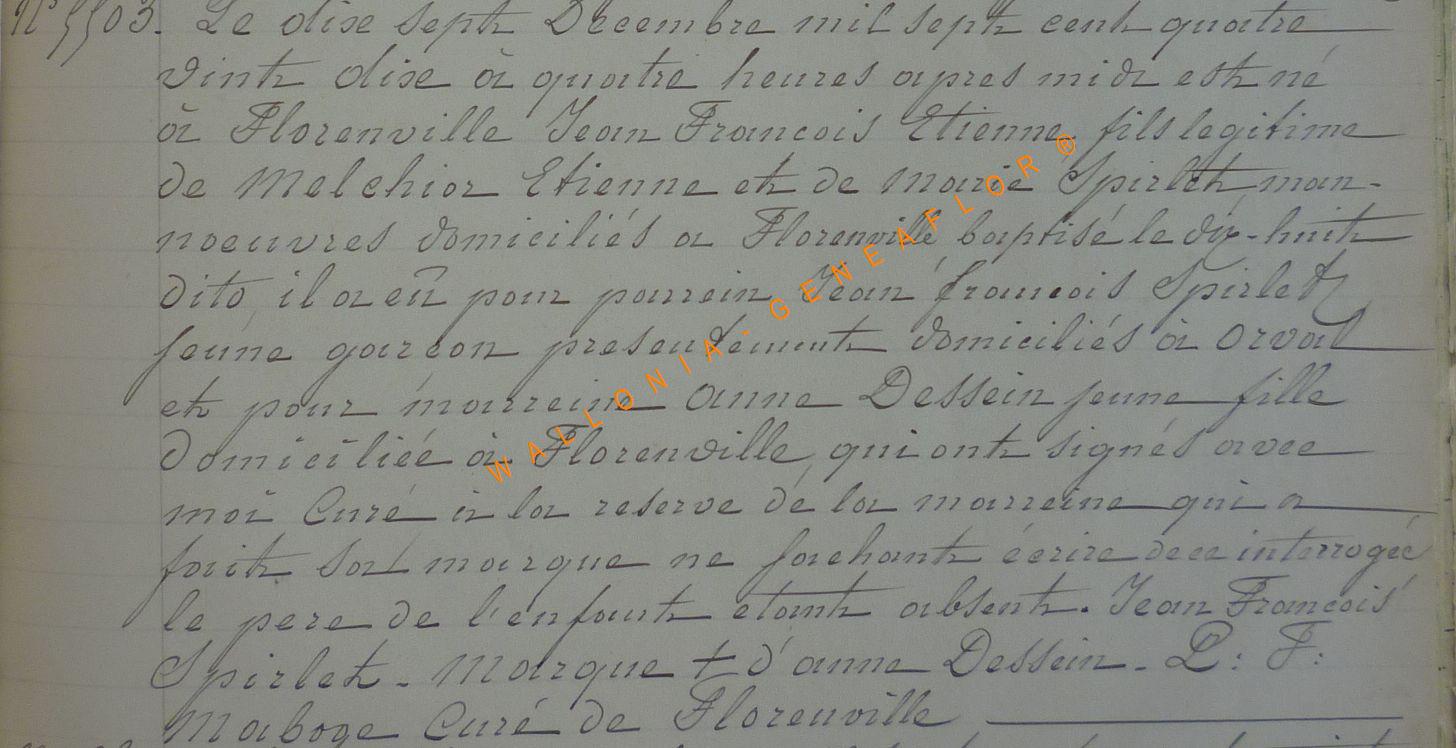 N° 5503. Le dixe sept Decembre mil sept cent quatre
vint dixe à quatre heures apres midi est né
à Florenville Jean Francois Etienne, fils legitime
de Melchior Etienne et de Marie Spirlet man-
noeuvres domiciliés a Florenville baptisé le dix-huit
dito, il a eû pour parrein Jean francois Spirlet
jeune garçon presentement domiciliés à Orval
et pour marreine anne Dessein jeune fille
domiciliée à Florenville, qui ont signés avec
moi Curé à la reserve de la marreine qui a
fait sa marque ne sachant écrire de ce interrogée
le pere de l'enfant etant absent. Jean Francois
Spirlet - Marque + d'anne Dessein - P: F:
Maboge Curé de Florenville
WALLONIA-GENEAFLOR®